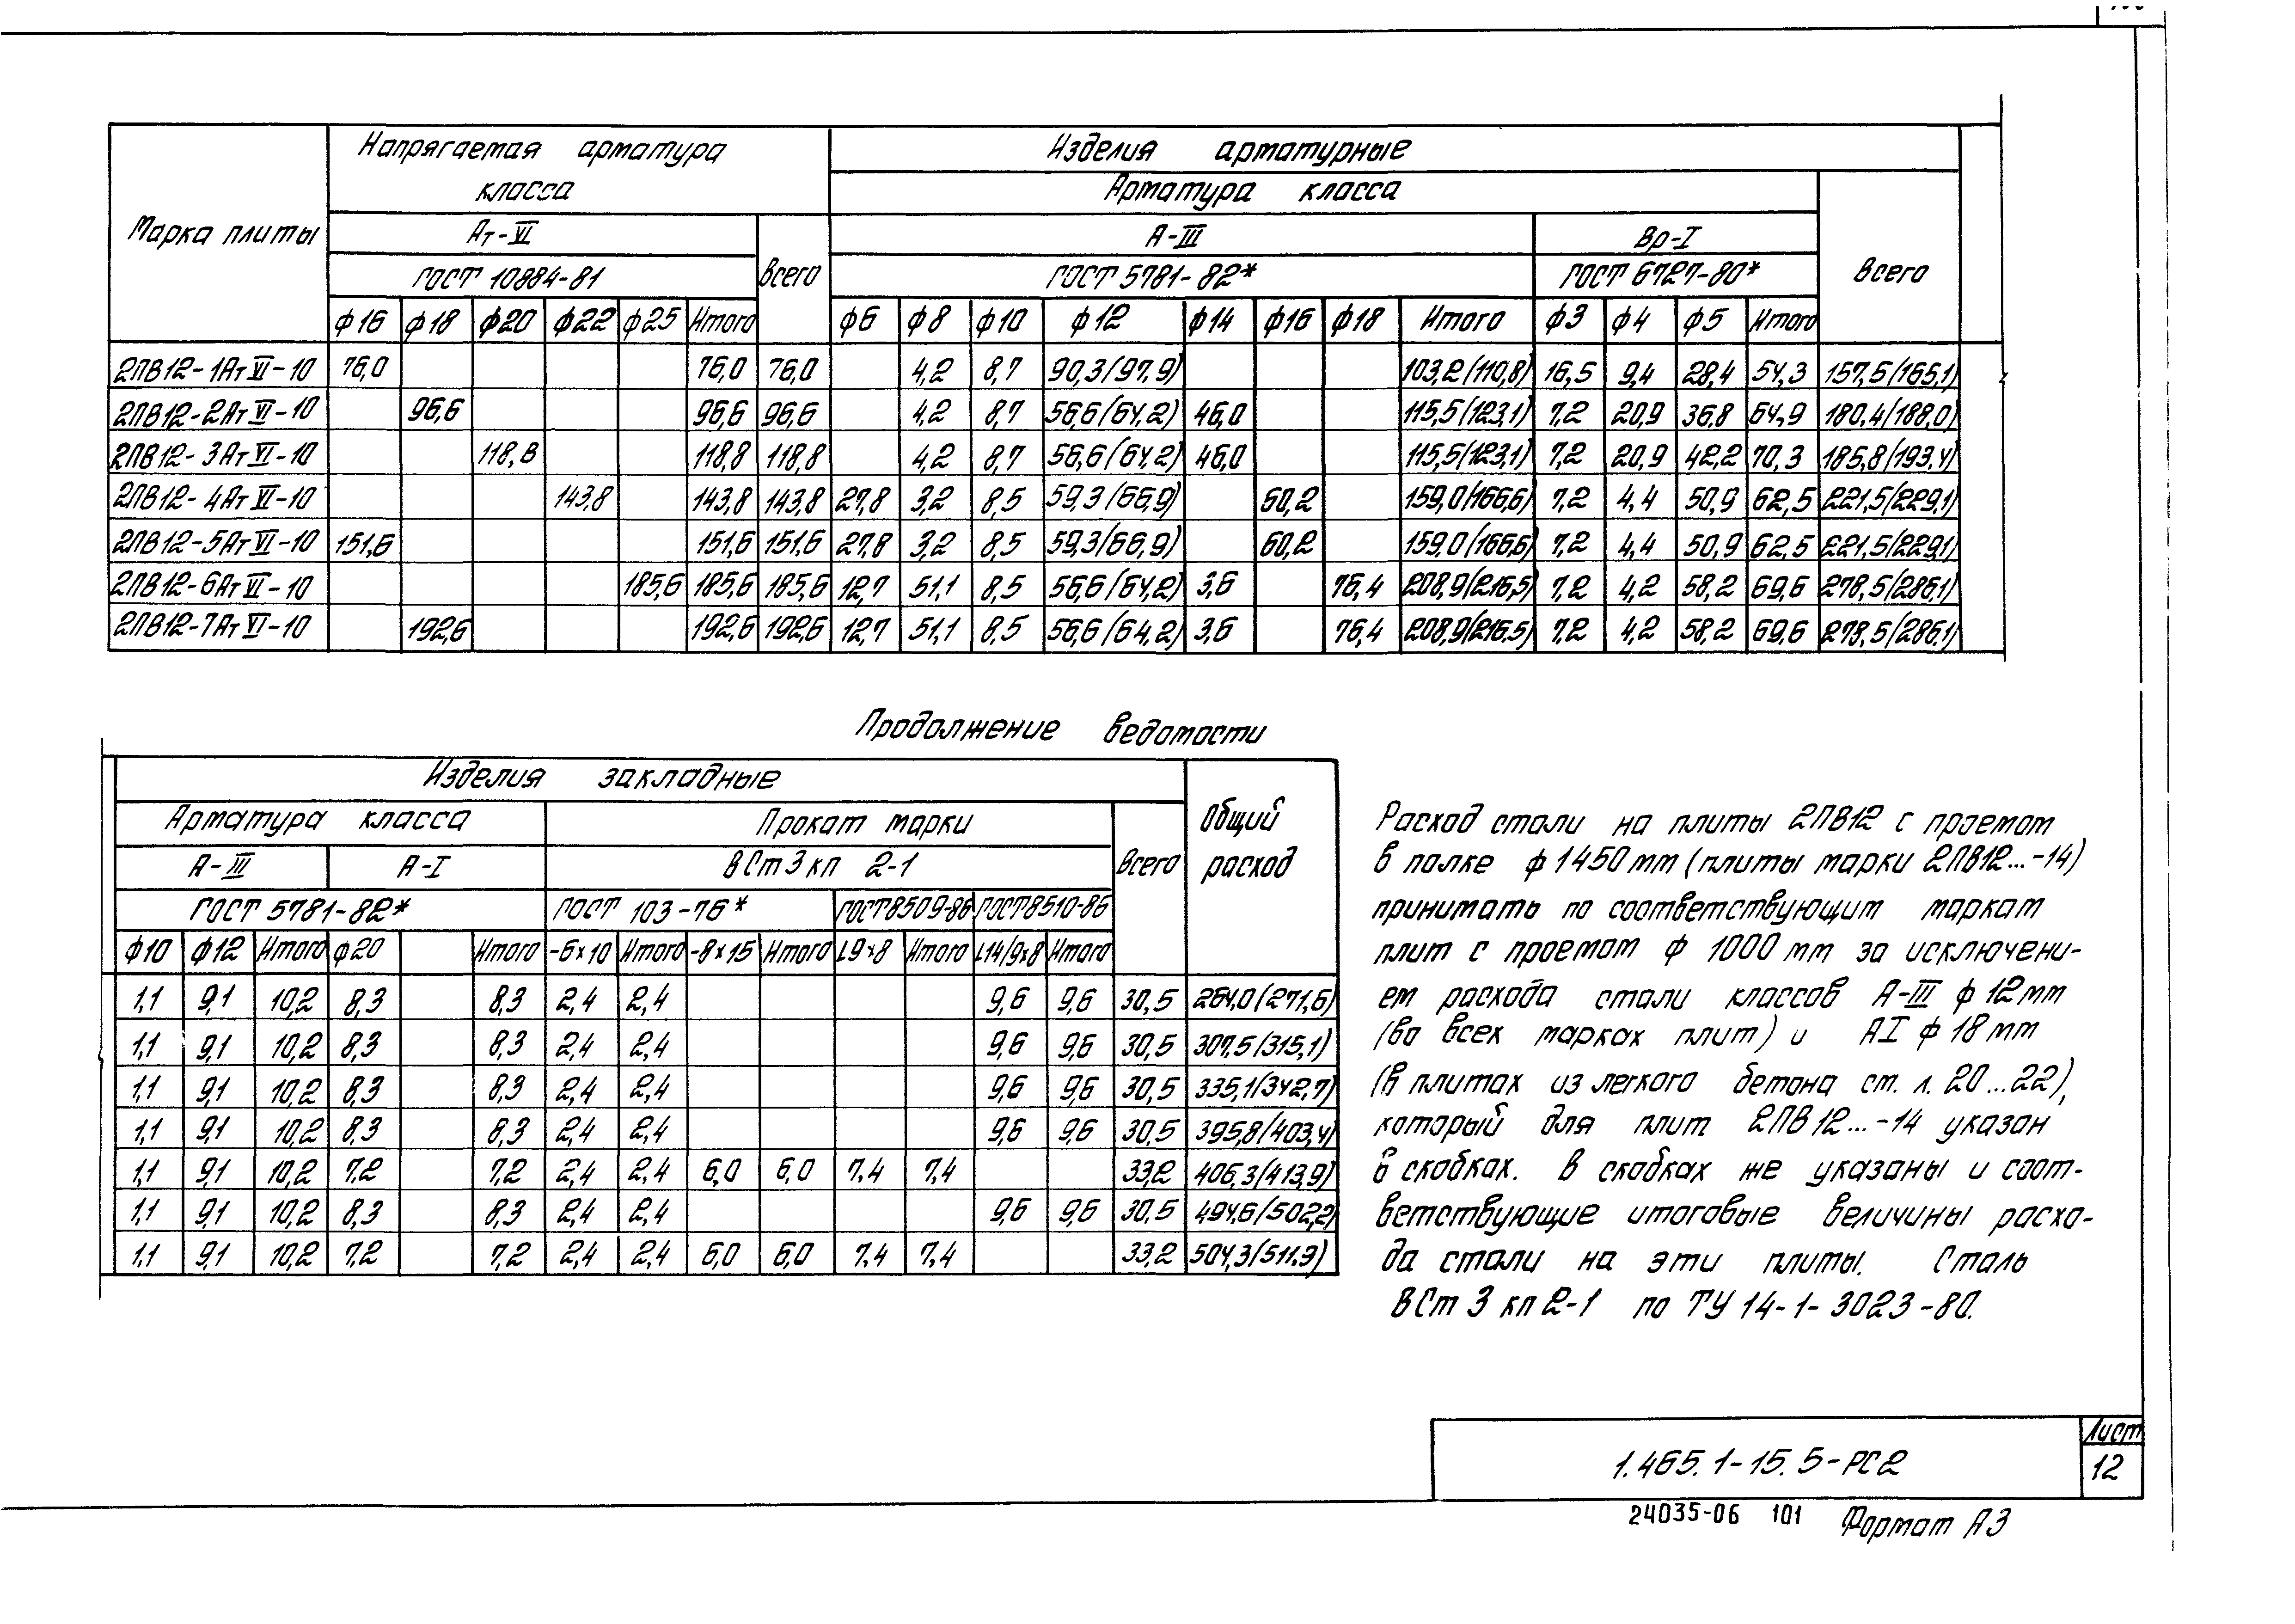 Марка плиты | Напрягаемая арматура класса | Изделия арматурные
Арматура класса
Ат-VI | Всего | А-III | Вр-I | Всего
ГОСТ 10884-81 | ГОСТ 5781-82* | ГОСТ 6727-80*
ф16 | ф18 | ф20 | ф22 | ф25 | Итого | ф6 | ф8 | ф10 | ф12 | ф14 | ф16 | ф18 | Итого | ф3 | ф4 | ф5 | Итого
2ПВ12-1АтVI-10 | 76,0 | 76,0 | 76,0 | 4,2 | 8,7 | 90,3(97,9) | 103,2(110,8) | 16,5 | 9,4 | 28,4 | 54,3 | 157,5(165,1)
2ПВ12-2АтVI-10 | 96,6 | 96,6 | 96,6 | 4,2 | 8,7 | 56,6(64,2) | 46,0 | 115,5(123,1) | 7,2 | 20,9 | 36,8 | 64,9 | 180,4(188,0)
2ПВ12-3АтVI-10 | 118,8 | 118,8 | 118,8 | 4,2 | 8,7 | 56,6(64,2) | 46,0 | 115,5(123,1) | 7,2 | 20,9 | 42,2 | 70,3 | 185,8(193,4)
2ПВ12-4АтVI-10 | 143,8 | 143,8 | 143,8 | 27,8 | 3,2 | 8,5 | 59,3(66,9) | 60,2 | 159,0(166,6) | 7,2 | 4,4 | 50,9 | 62,5 | 221,5(229,1)
2ПВ12-5АтVI-10 | 151,6 | 151,6 | 151,6 | 27,8 | 3,2 | 8,5 | 59,3(66,9) | 60,2 | 159,0(166,6) | 7,2 | 4,4 | 50,9 | 62,5 | 221,5(229,1)
2ПВ12-6АтVI-10 | 185,6 | 185,6 | 185,6 | 12,7 | 51,1 | 8,5 | 56,6(64,2) | 3,6 | 76,4 | 208,9(216,5) | 7,2 | 4,2 | 58,2 | 69,6 | 278,5(286,1)
2ПВ12-7АтVI-10 | 192,6 | 192,6 | 192,6 | 12,7 | 51,1 | 8,5 | 56,6(64,2) | 3,6 | 76,4 | 208,9(216,5) | 7,2 | 4,2 | 58,2 | 69,6 | 278,5(286,1)
Продолжение ведомости
Изделия закладные | Общий расход
Арматура класса | Прокат марки | Всего
А-III | А-I | ВСт3кп 2-1
ГОСТ 5781-82* | ГОСТ 103-76* | ГОСТ8509-86 | ГОСТ8510-86
ф10 | ф12 | Итого | ф20 | Итого | -6х10 | Итого | -8х15 | Итого | L9х8 | Итого | L14/9х8 | Итого
1,1 | 9,1 | 10,2 | 8,3 | 8,3 | 2,4 | 2,4 | 9,6 | 9,6 | 30,5 | 264,0(271,6)
1,1 | 9,1 | 10,2 | 8,3 | 8,3 | 2,4 | 2,4 | 9,6 | 9,6 | 30,5 | 307,5(315,1)
1,1 | 9,1 | 10,2 | 8,3 | 8,3 | 2,4 | 2,4 | 9,6 | 9,6 | 30,5 | 335,1(342,7)
1,1 | 9,1 | 10,2 | 8,3 | 8,3 | 2,4 | 2,4 | 9,6 | 9,6 | 30,5 | 395,8(403,4)
1,1 | 9,1 | 10,2 | 7,2 | 7,2 | 2,4 | 2,4 | 6,0 | 6,0 | 7,4 | 7,4 | 33,2 | 406,3(413,9)
1,1 | 9,1 | 10,2 | 8,3 | 8,3 | 2,4 | 2,4 | 9,6 | 9,6 | 30,5 | 494,6(502,2)
1,1 | 9,1 | 10,2 | 7,2 | 7,2 | 2,4 | 2,4 | 6,0 | 6,0 | 7,4 | 7,4 | 33,2 | 504,3(511,9)
Расход стали на плиты 2ПВ12 с проемом
в полке ф 1450 мм (плиты марки 2ПВ12...-14)
принимать по соответствующим маркам
плит с проемом ф 1000 мм за исключени-
ем расхода стали классов А-III ф 12 мм
(во всех марках плит) и АI ф 18 мм
(в плитах из легкого бетона ст. л. 20...22),
который для плит 2ПВ12...-14 указан
в скобках. В скобках же указаны и соот-
ветствующие итоговые величины расхо-
да стали на эти плиты. Сталь
ВСт 3 кп 2-1 по ТУ 14-1-3023-80.
1.465.1-15.5-РС2
Лист
12
24035-06 101 Формат А3